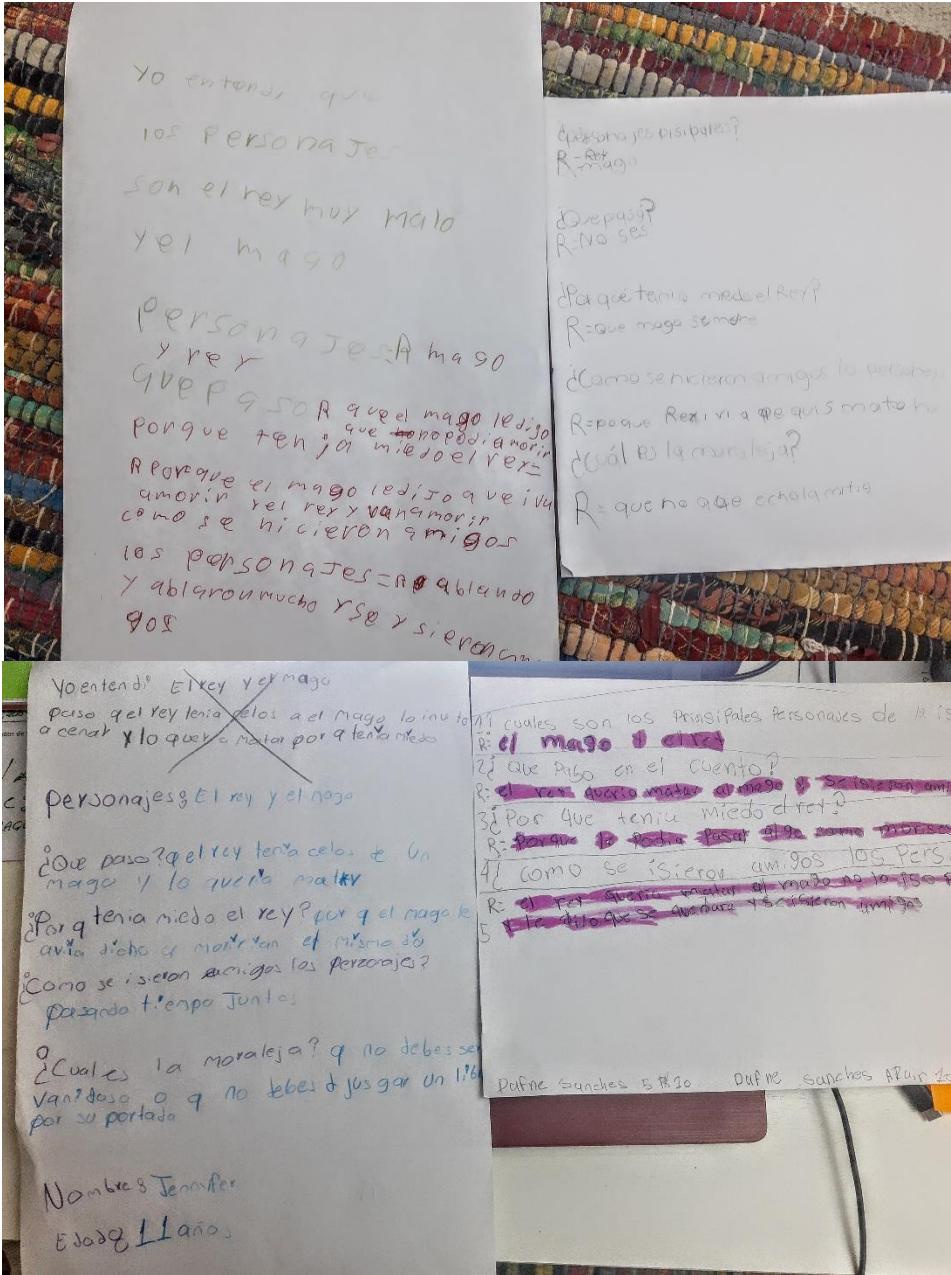 Yo entendi que
los personajes
son el rey muy malo
y el mago
personajes=R mago
y rey
que paso R que el mago le dijo
que no podia morir
porque tenia miedo el rey=
R Porque el mago le dijo que iva
amorir y el rey y van amorir
como se hicieron amigos
los personajes=R ablando
y ablaron mucho y se y sieron
gos
¿personajes pisipales?
R-Rey
mago
¿Que pasa?
R=No ses
¿Pa qué tenia medo el Rey?
R=que mago semore
¿Como se nicieron amigos lo persones
R=poque Rexivi a que quis mato
¿Cuál es la muraleja?
R= que no que echola mitis
Yo entendi El rey y el mago
paso q el rey tenia celos a el mago lo invito
a cenar y lo queria matar por q tenia miedo
personajes: El rey y el mago
¿Que paso? q el rey tenia celos de un
mago y lo queria matar
¿Por q tenia miedo el rey? por q el mago le
avia dicho q moririan el mismo dia
¿Como se isieron amigos los perzonajes?
pasando tiempo Juntos
¿Cual es la moraleja? q no debes ser
vanidoso o q no debes d jusgar un lib
por su portada
Nombre: Jennifer
Edad: 11 años
1¿ cuales son los Prinsipales Personajes de la is
R: el mago y el rey
2¿ Que Paso en el cuento?
R: el rey queria matar al mago y se isieron ami
3¿ Por que tenia miedo el rey?
R: Porque le Podia Pasar algo como morise
4¿ como se isieron amigos los Pers
R: el rey queria matar al mago no lo iso
y le dijo que se quedara y se isieron amigos
5
Dafne Sanches 5 A 10 Dafne Sanches